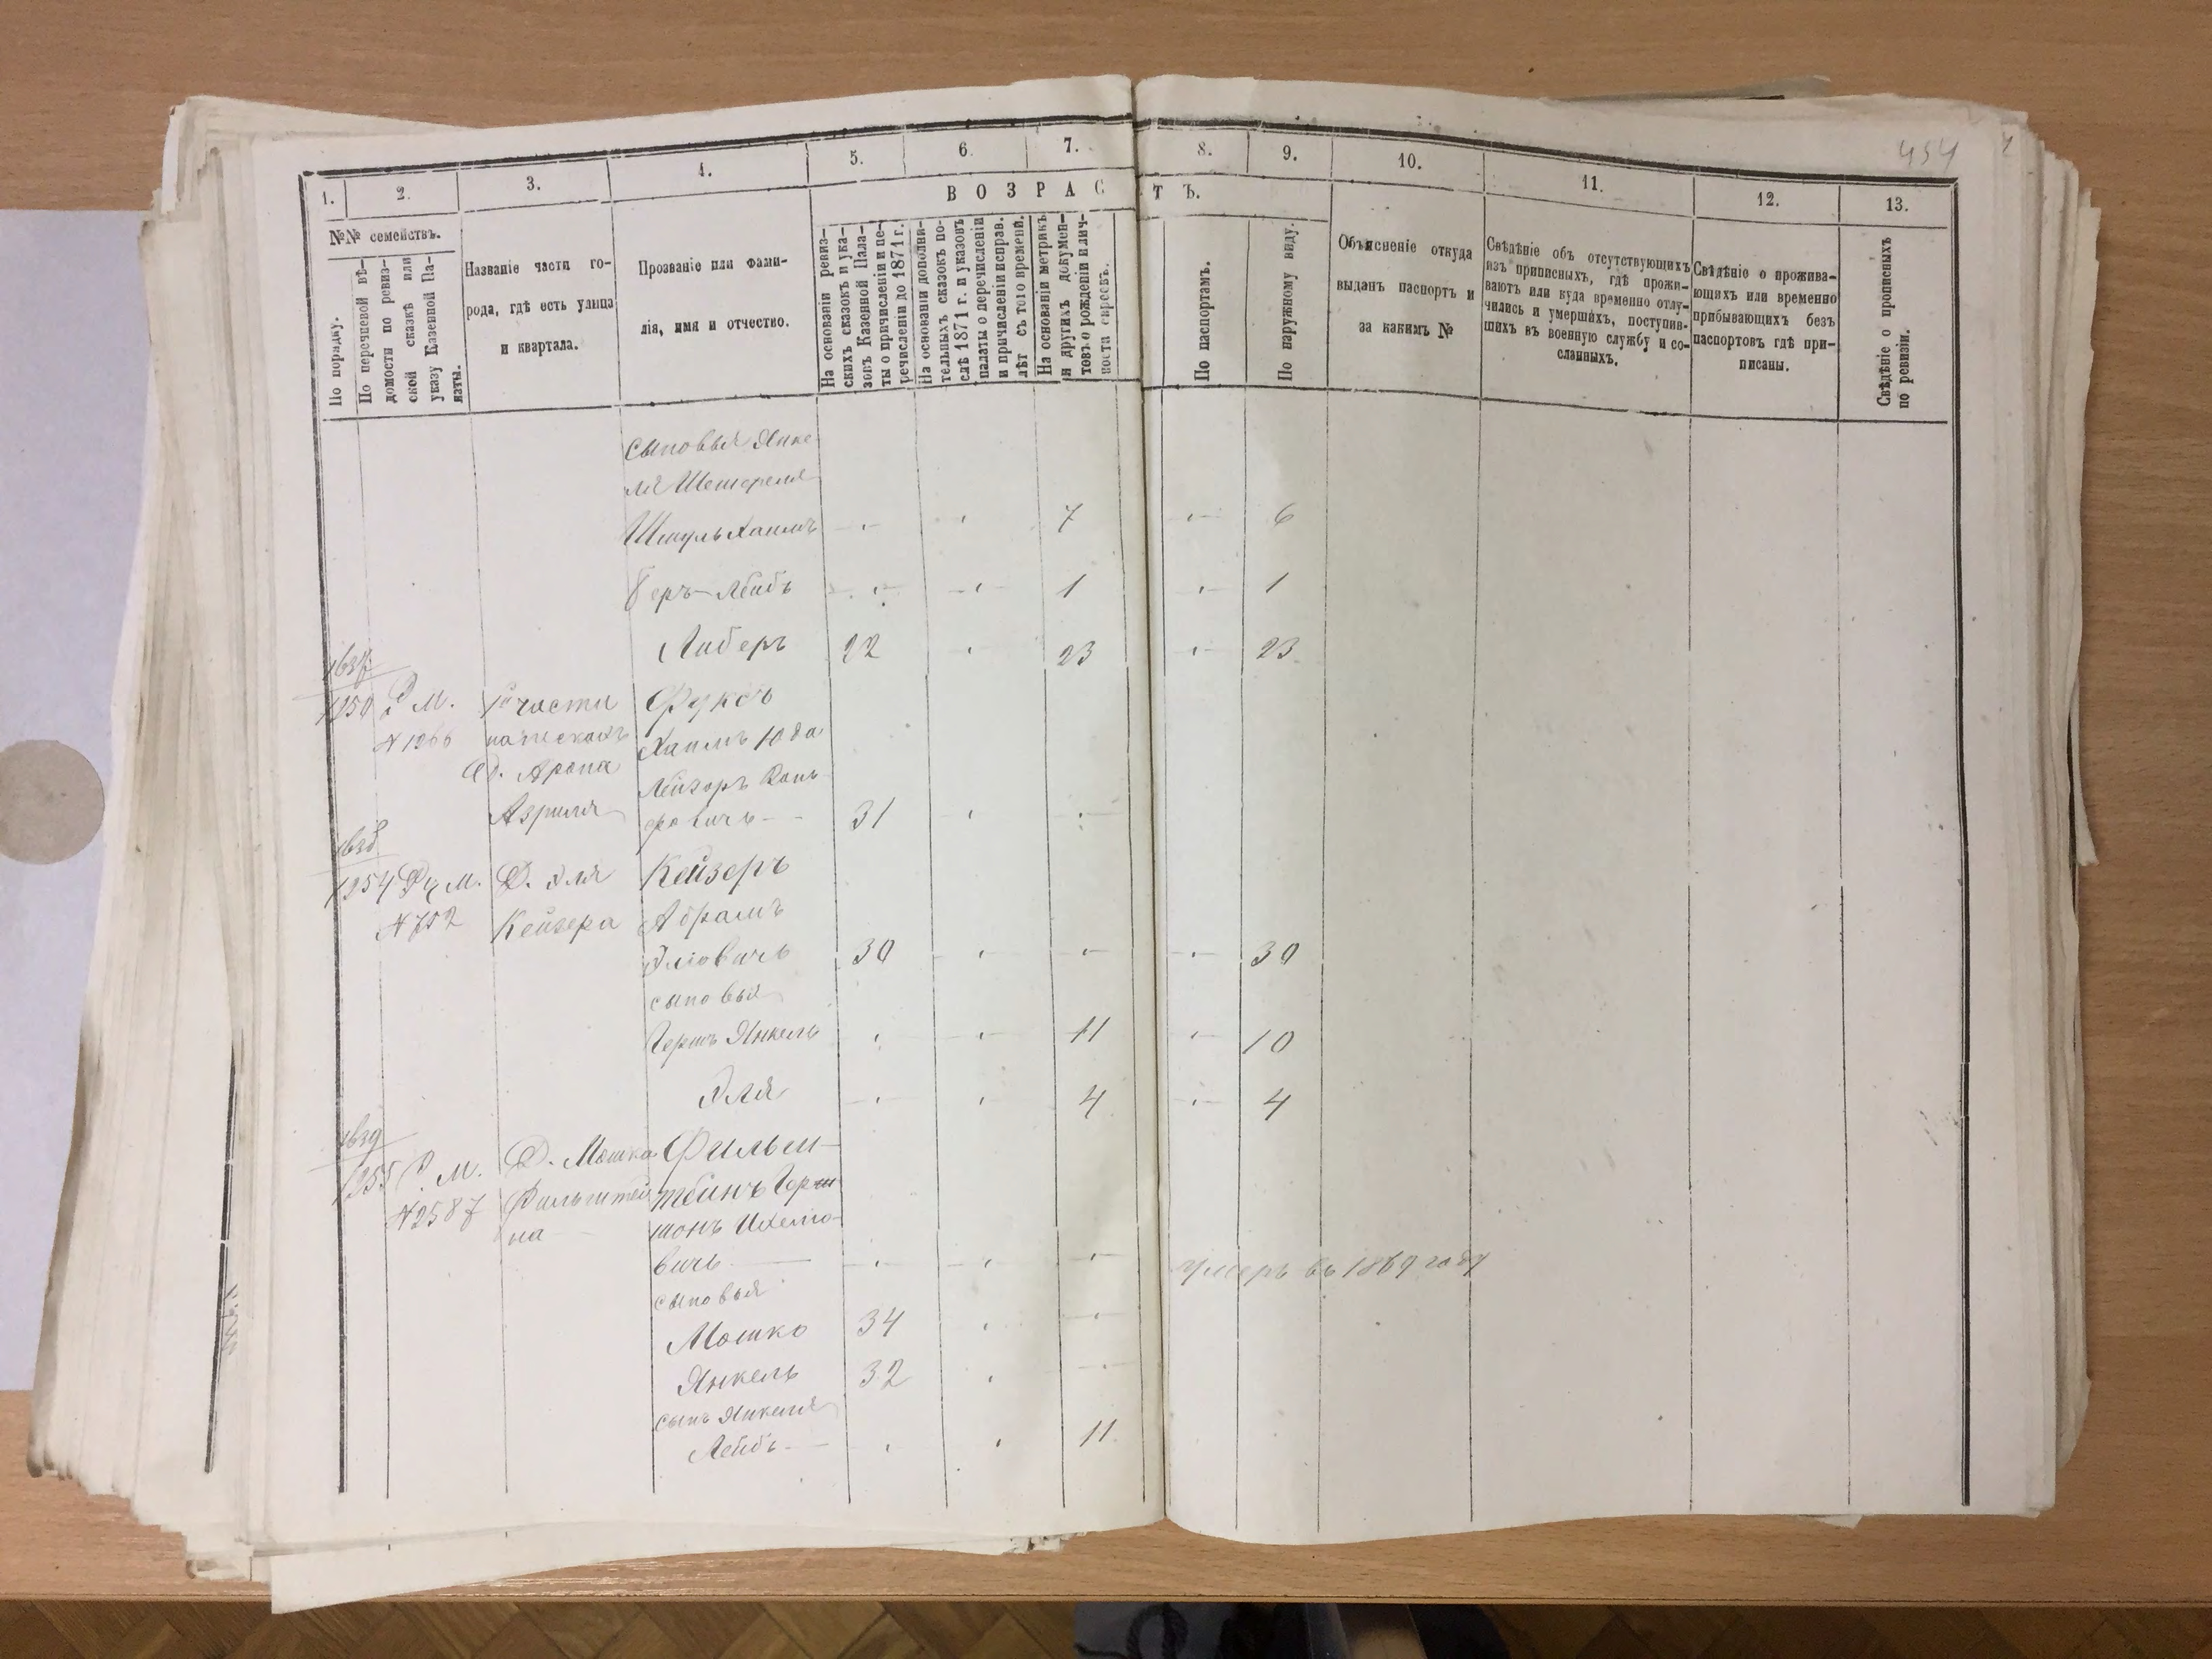 454
1.
2.
3.
4.
5.
6.
7.
8.
9.
10.
11.
12.
13.
ВОЗРАСТЪ.
№№ семействъ.
По порядку.
По перечневой вѣ-
домости по ревиз-
ской сказкѣ или
указу Казенной Па-
латы.
Названіе части го-
рода, гдѣ есть улица
и квартала.
Прозваніе или фами-
лія, имя и отчество.
На основаніи ревиз-
скихъ сказокъ и ука-
зовъ Казенной Пала-
ты о причисленіи и пе-
речисленіи до 1871 г.
На основаніи дополни-
тельныхъ сказокъ по-
слѣ 1871 г. и указовъ
палаты о перечисленіи
и причисленіи исправ.
лѣт съ того времени.
На основаніи метрикъ
и другихъ докумен-
товъ о рожденіи и лич-
ности евреевъ.
По паспортамъ.
По наружному виду.
Объясненіе откуда
выданъ паспортъ и
за какимъ №
Свѣдѣніе объ отсутствующихъ
изъ приписныхъ, гдѣ прожи-
ваютъ или куда временно отлу-
чились и умершихъ, поступив-
шихъ въ военную службу и со-
сланныхъ.
Свѣдѣніе о прожива-
ющихъ или временно
прибывающихъ безъ
паспортовъ гдѣ при-
писаны.
Свѣдѣніе о прописныхъ
по ревизіи.
сыновья Янке-
ля
Шмуль Хаимъ 7 6
Беръ-Лейбъ 1 1
Либеръ 22 23 23
1637
1250 М. 1й части Фуксъ
№ 1266 Хаимъ Юда
Д. Арона Лейзоръ
Азриля 31
1638
1254 М. Д. Эля Кейзеръ
№ 752 Кейзера Абрамъ
Эліовичъ 30 30
сыновья
Гершъ Янкель 11 10
Эля 4 4
1639
1255 Р. М. Д. Мошка Фильш-
№ 2587 Фильштей тейнъ Гер-
на шонъ
вичъ умеръ въ 1869 году
сыновья
Мошко 34
Янкель 32
сынъ Янкеля
Лейбъ 11